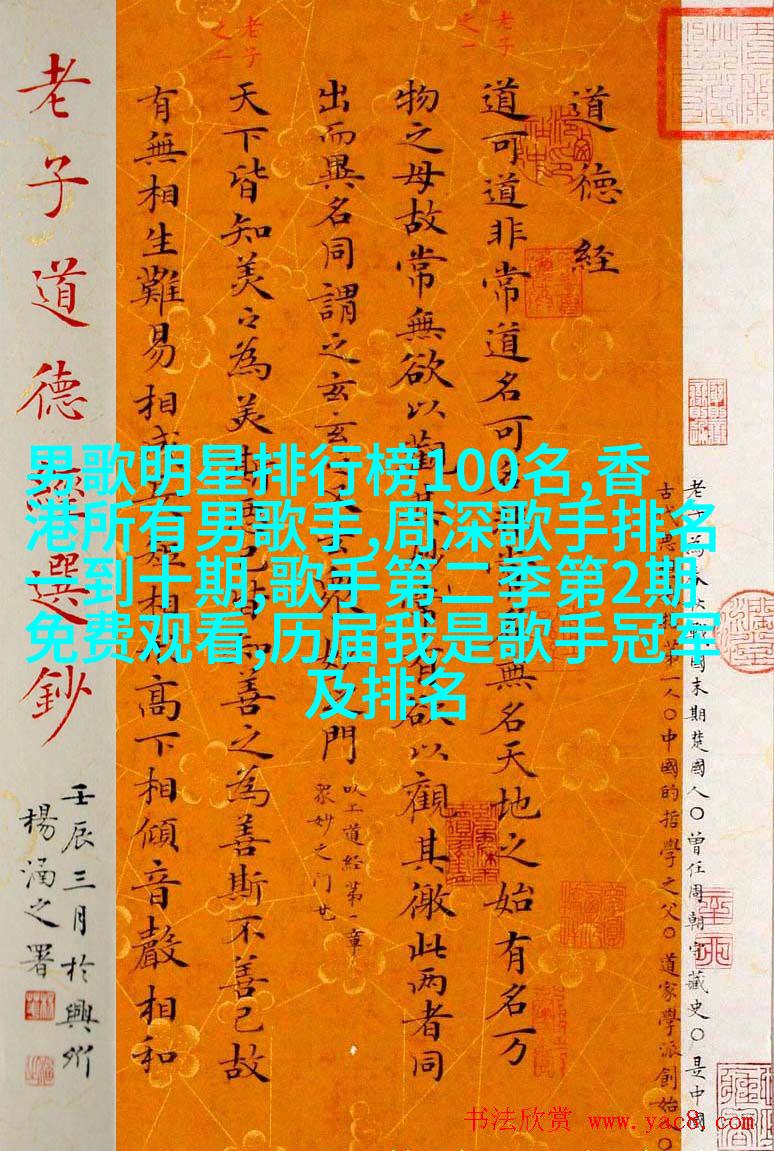 男歌明星排行榜100名,香
港所有男歌手,周深歌手排名
一到十期,歌手第二季第2期
免费观看,历届我是歌手冠军
及排名
老子為 戰國末期楚國人〇曾任周朝守藏史〇是中國
古代 第一人〇中國的哲學之父〇道家學派創始〇
道德經
老子之一
道可道非常道名可名非 無名天地之始有名万
物之母故常無欲以觀其妙 有欲以觀其徼此两者同
出而異名同謂之玄玄之又玄眾妙之門
以上道經第一章
眾妙之门
老子之二
天下皆知美之為美斯惡已皆知善之為善斯不善已故
有無相生難易相成 相 高下相傾音聲相和
老子道德經選鈔
壬辰三月於興
楊涵之署
书法欣赏 www.yac8.com